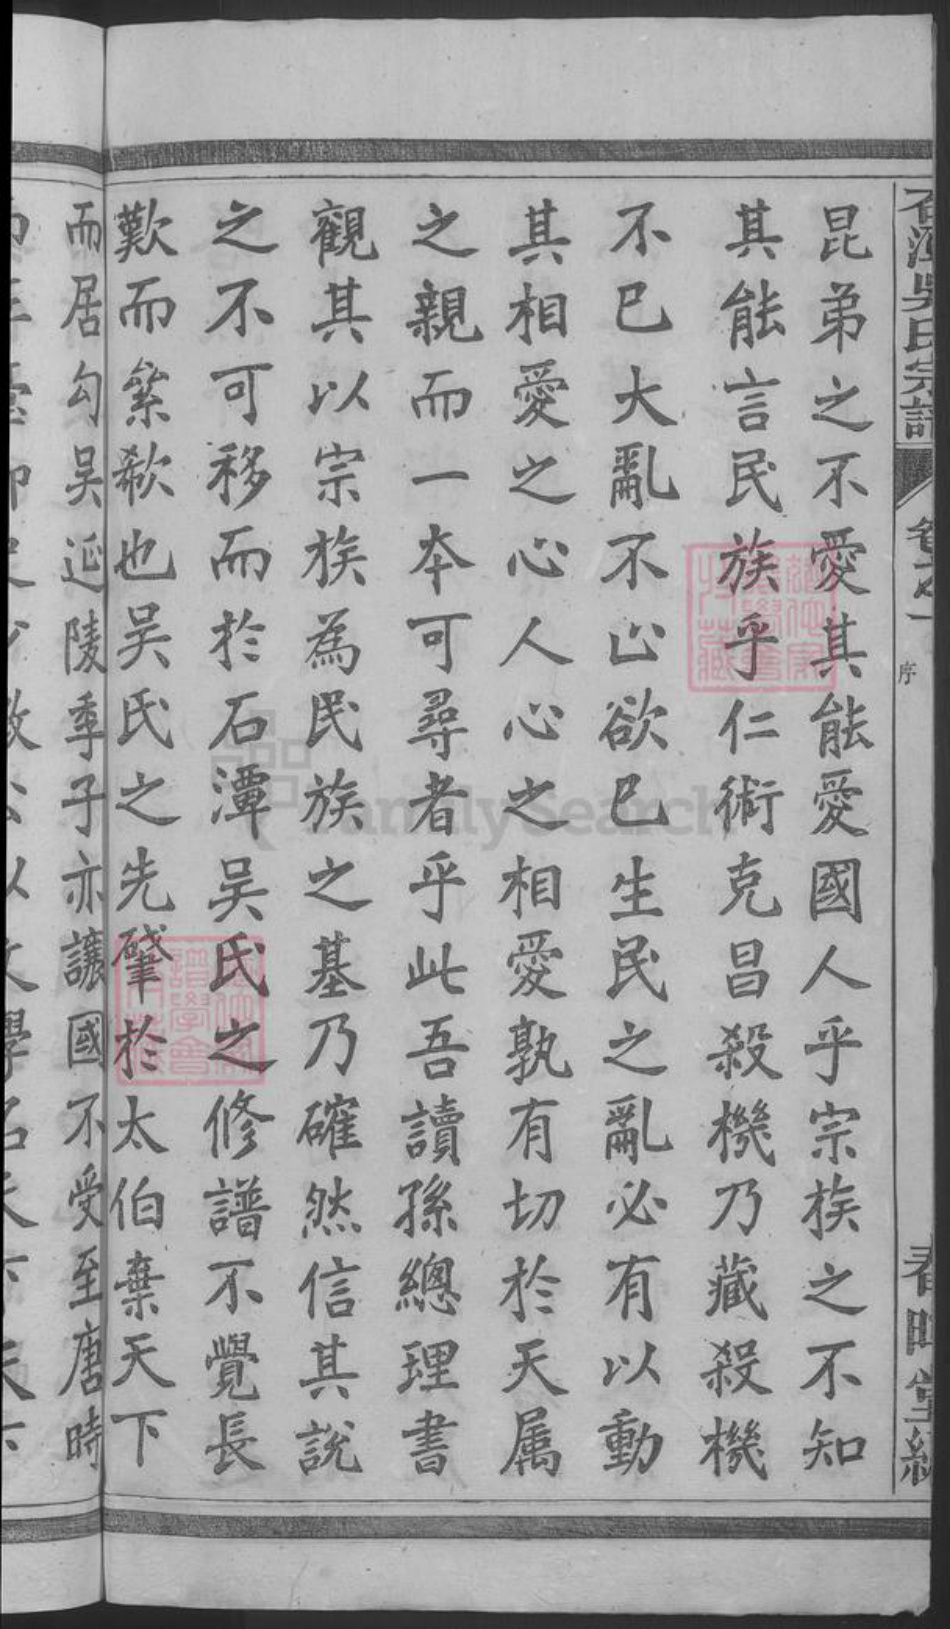 石潭吳氏宗譜
卷之一
序
春暉堂編
昆弟之不愛其能愛國人乎宗族之不知
其能言民族乎仁術克昌殺機乃藏殺機
不已大亂不止欲已生民之亂必有以動
其相愛之心人心之相愛孰有切於天属
之親而一夲可尋者乎此吾讀孫總理書
觀其以宗族為民族之基乃確然信其說
之不可移而於石潭吴氏之修譜不覺長
歎而縈欷也吴氏之先肈於太伯棄天下
而居勾吴延陵季子亦讓國不受至唐時
FamilySearch